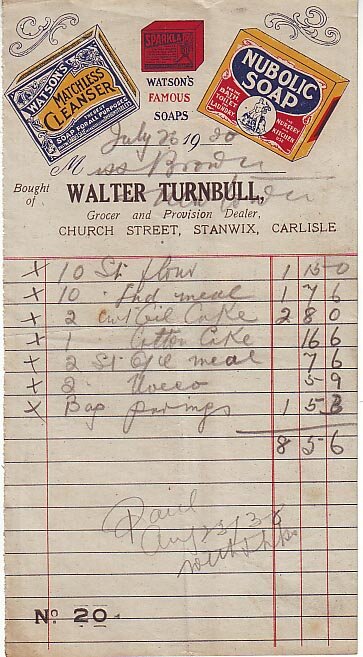 SPARKLA
WATSON'S
MATCHLESS
CLEANSER
SOAP FOR ALL PURPOSES
NUBOLIC
SOAP
BATH
TOILET
LAUNDRY
NURSERY
KITCHEN
WATSON'S
FAMOUS
SOAPS
July 26 19 30
Miss Brown
Bought of WALTER TURNBULL,
Grocer and Provision Dealer,
CHURCH STREET, STANWIX, CARLISLE
X 10 St flour 1 15 0
X 10 meal 1 7 6
X 2 cwt Oil Cake 2 8 0
X 1 Cotton Cake 16 6
X 2 St meal 7 6
X 2 Uveco 5 9
X Bag parings 1 5 3
8 5 6
Paid
Aug 23/30
with thks
No. 20